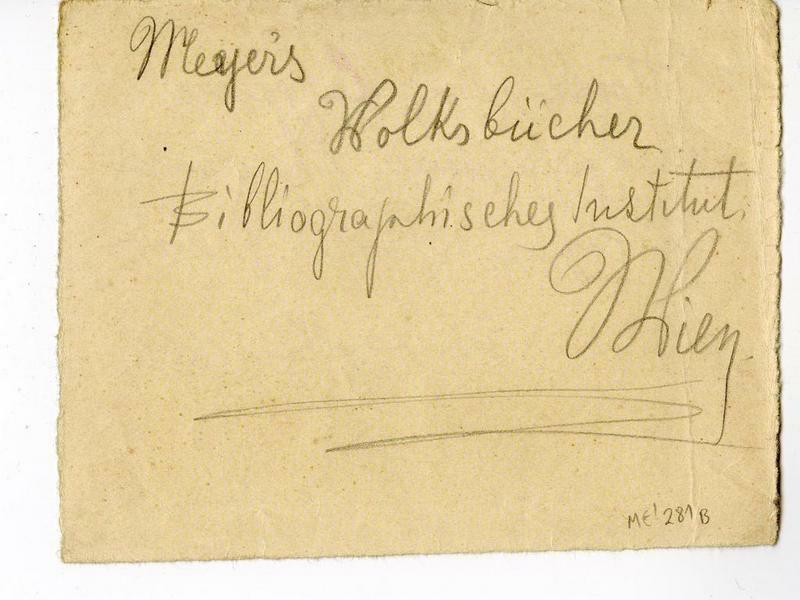 Meyer's
Volksbücher
Bibliographisches Institut.
Wien
ME' 281 B